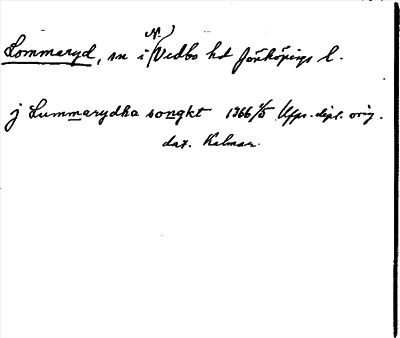 Lommaryd, sn i N. Vedbo hd Jönköpings l.
j Lummarydha songkt 1366 1/5 Upps. dipl. orig.
dat. Kalmar.